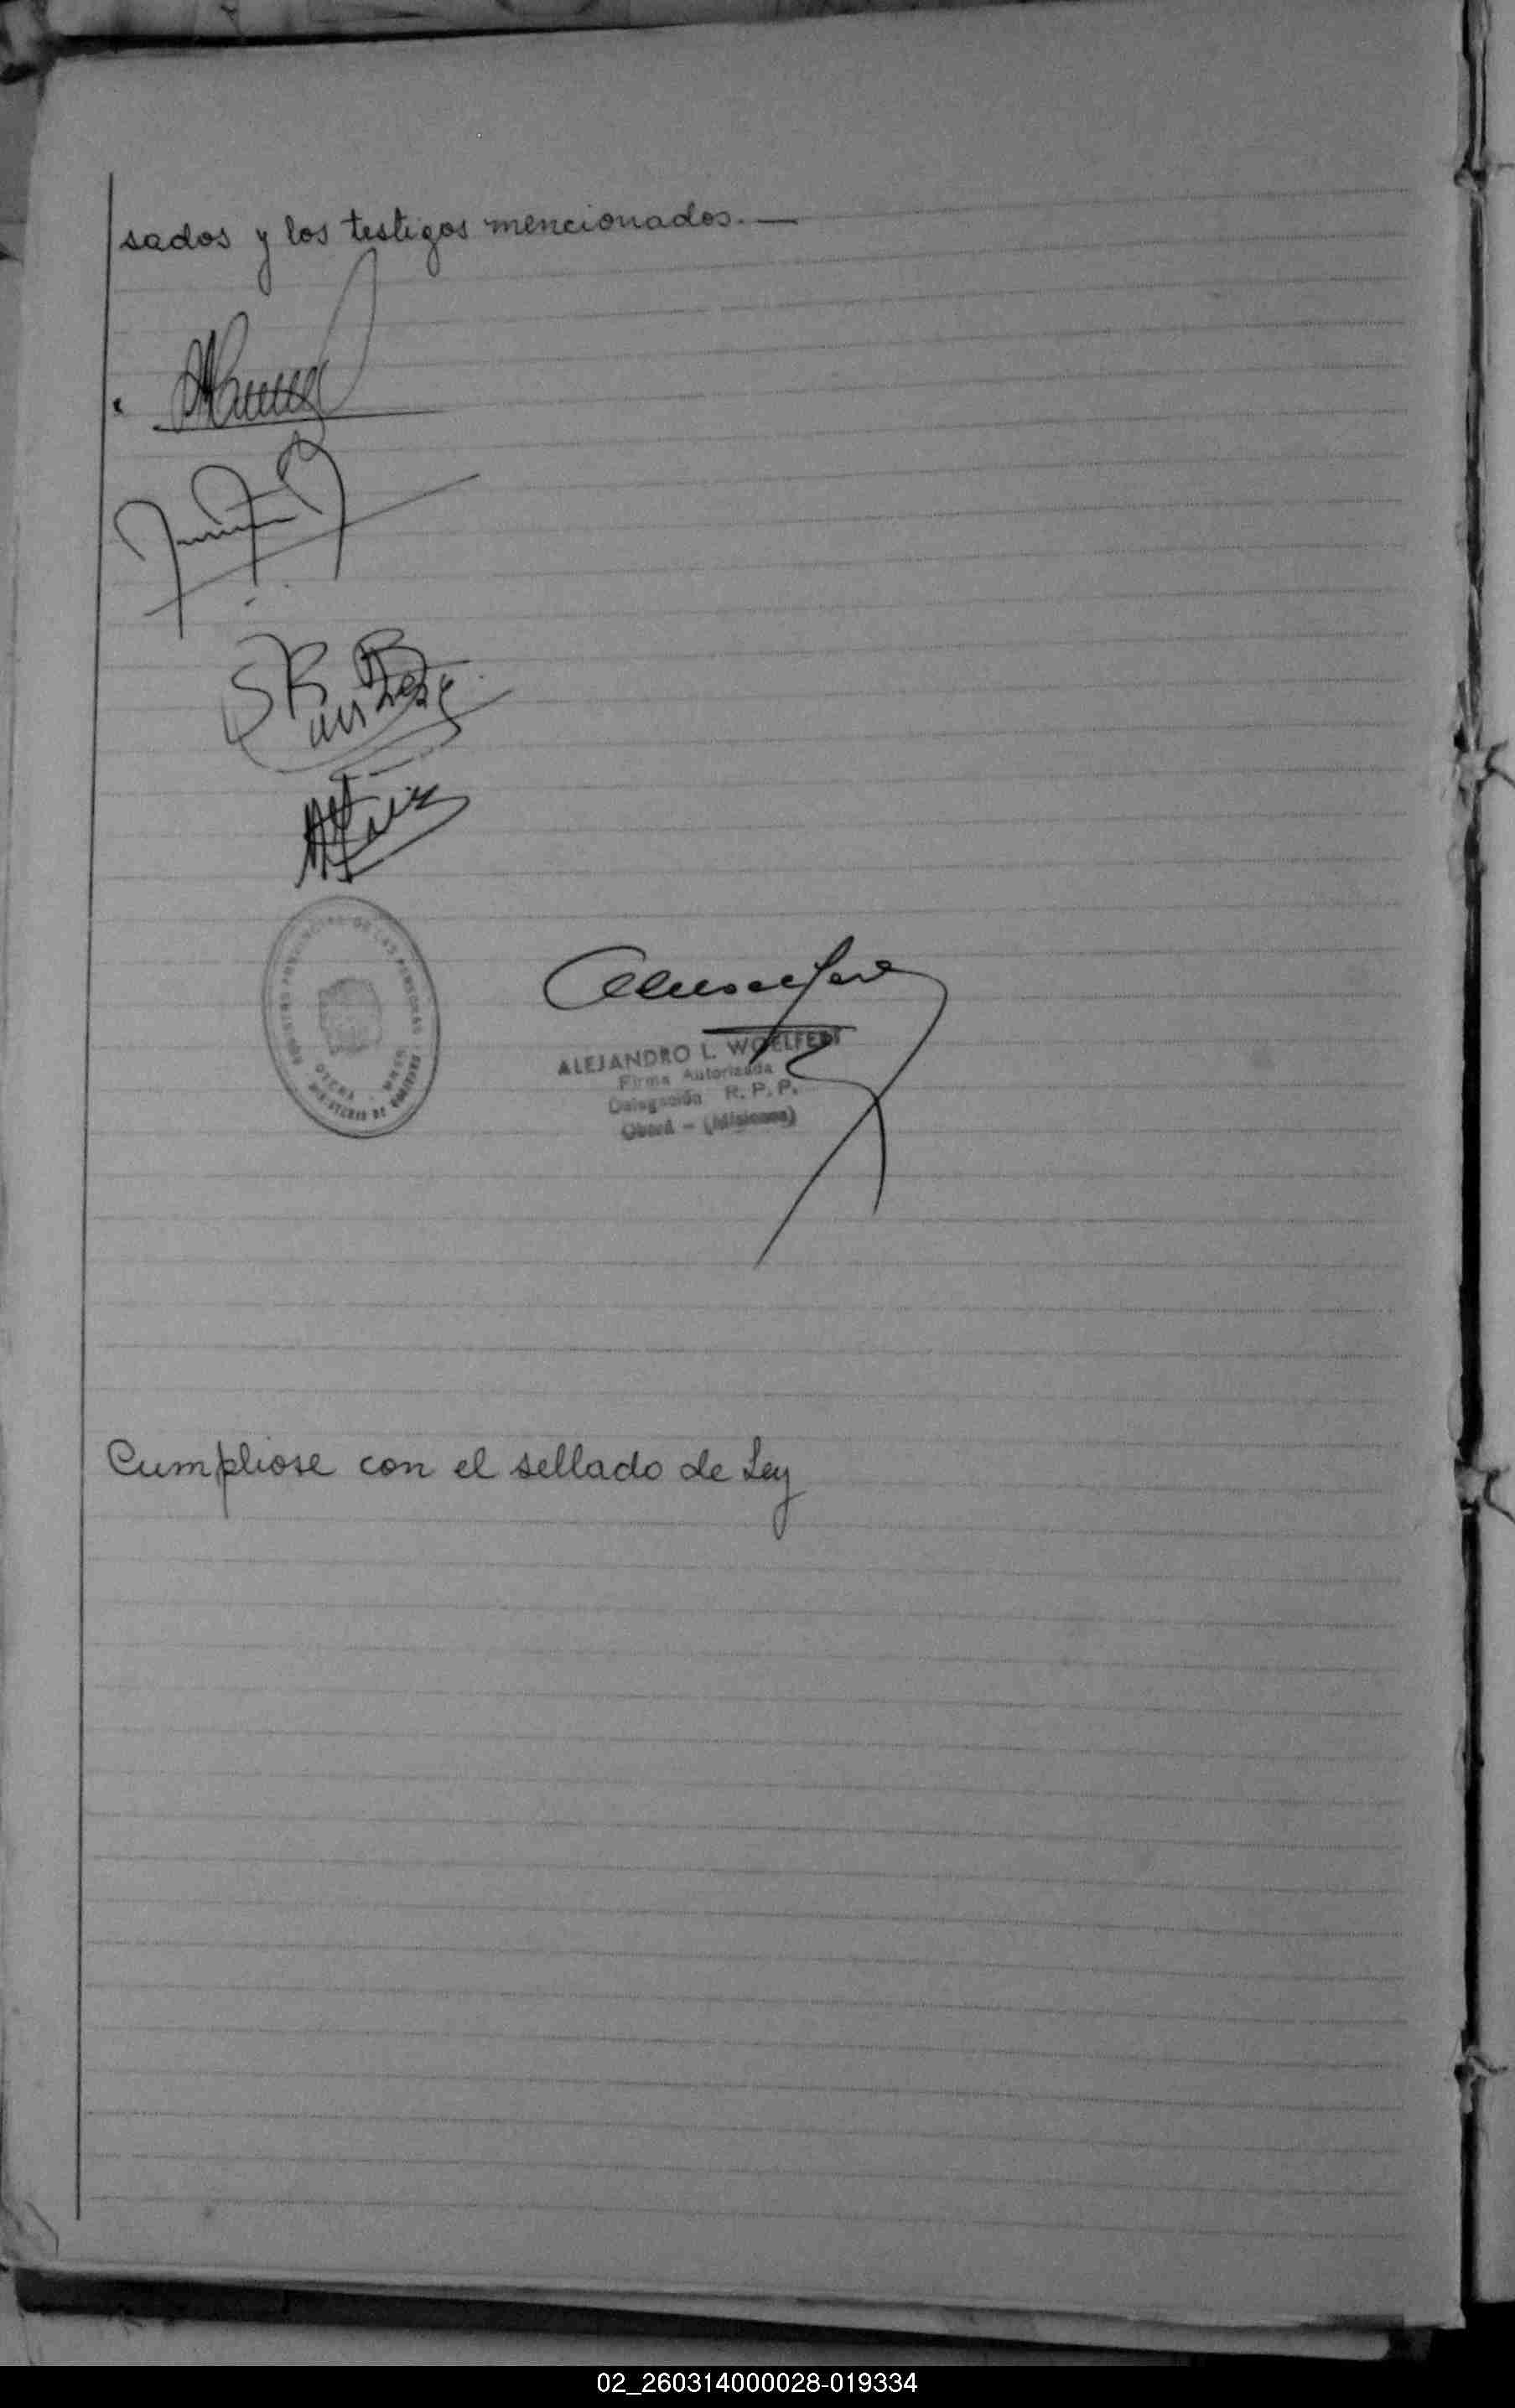 sados y los testigos mencionados.—
REGISTRO PROVINCIAL DE LAS PERSONAS
OBERA - MNES.
MINISTERIO DE GOBIERNO
ALEJANDRO L. WOELFERT
Firma Autorizada
Delegación R. P. P.
Oberá - (Misiones)
Cumpliose con el sellado de Ley
02_260314000028-019334